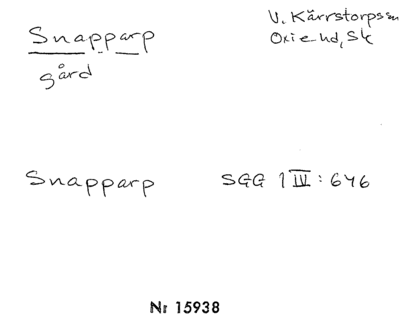 Snapparp
gård
V. Kärrstorps sn
Oxie hd, Sk
Snapparp SGG 1 IV: 646
Nr 15938